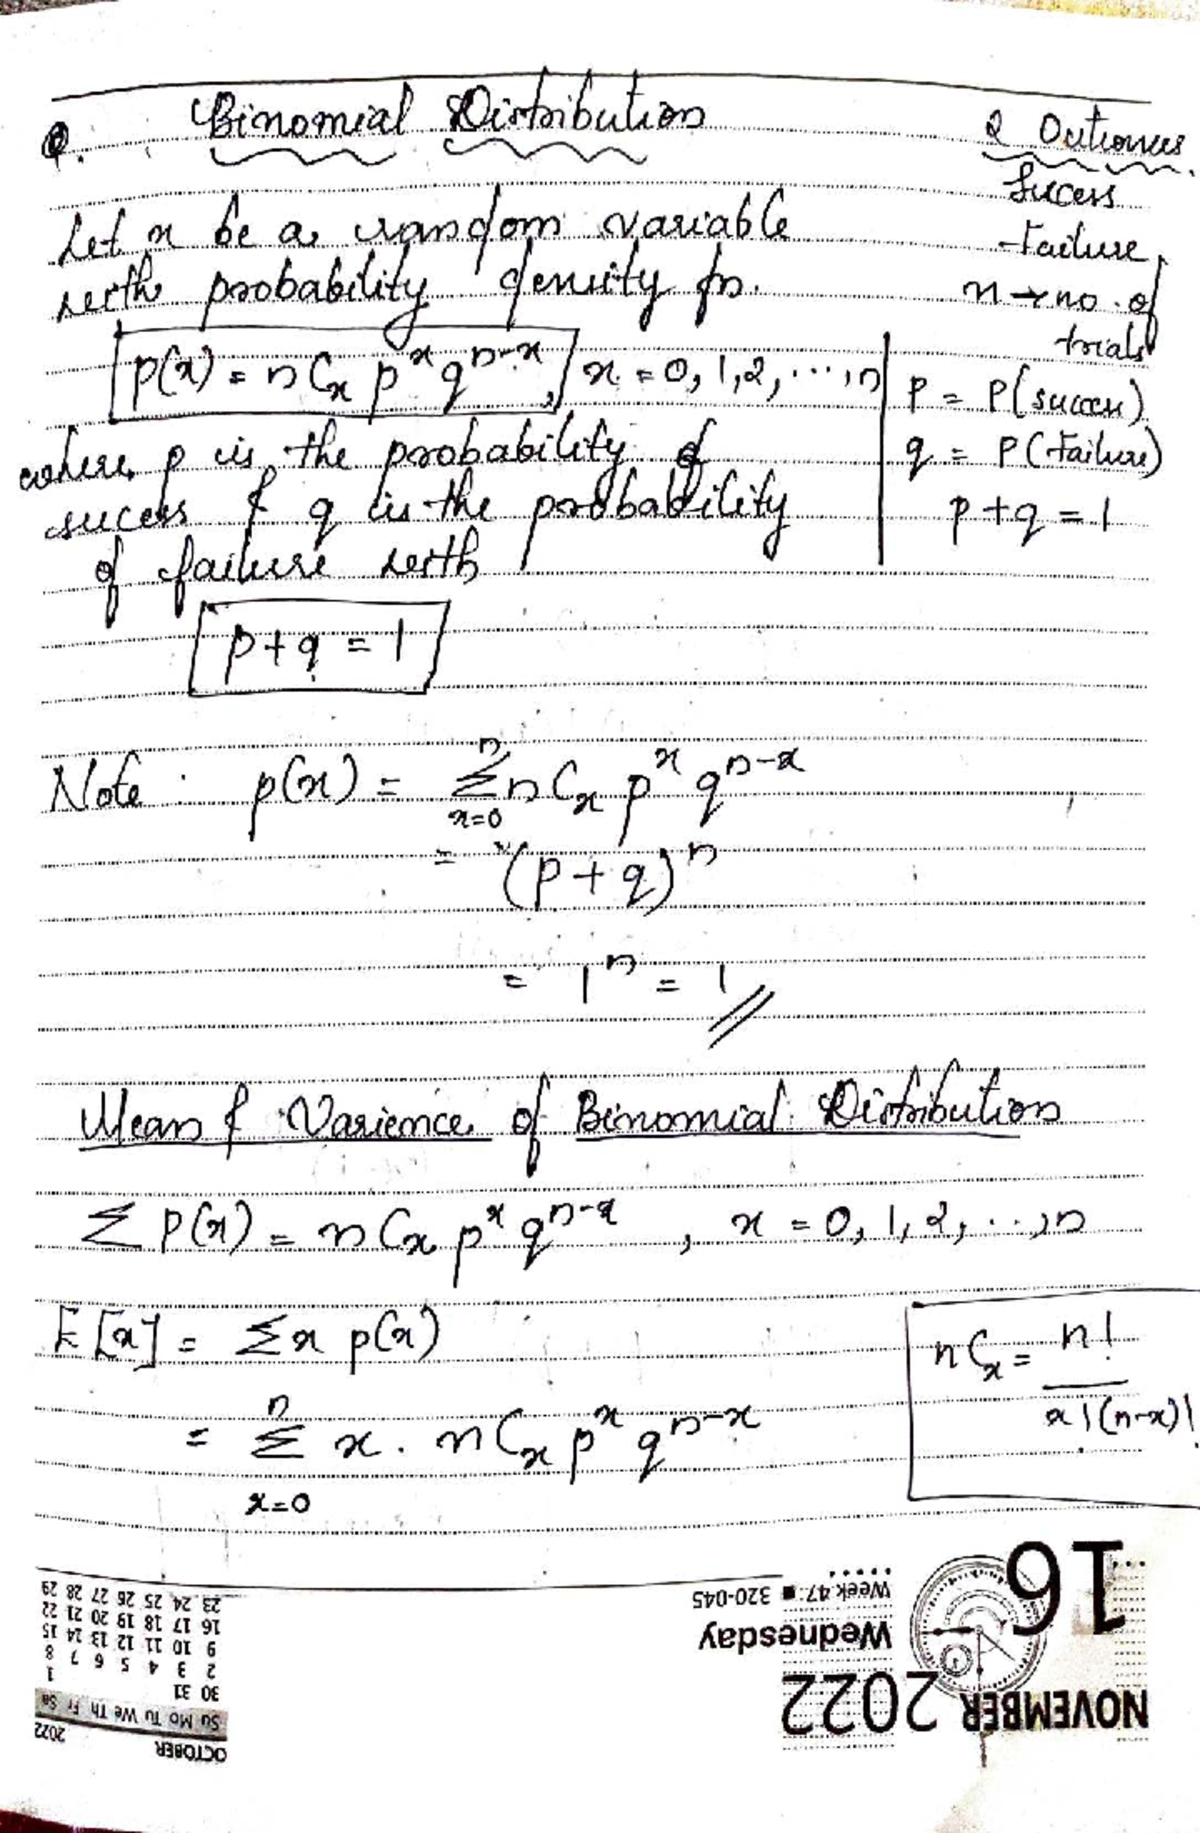 Q. Binomial Distribution
2 Outcomes
Sucess
Failure
n → no. of
trials
Let x be a random variable
with probability density fn.
p(x) = nCx p^x q^n-x, x = 0, 1, 2, ..., n
p = P(success)
q = P(Failure)
p + q = 1
where p is the probability of
sucess & q is the probability
of failure with
p + q = 1
Note : p(x) = n Σ x=0 nCx p^x q^n-x
= (p + q)^n
= 1^n = 1 //
Mean & Varience of Binomial Distribution
Σ P(x) = nCx p^x q^n-x, x = 0, 1, 2, ..., n
E[x] = Σx p(x)
nCx = n! / x!(n-x)!
= n Σ x=0 x. nCx p^x q^n-x
16
Week 47 ■ 320-045
Wednesday
NOVEMBER 2022
OCTOBER 2022
Su Mo Tu We Th Fr Sa
30 31 1
2 3 4 5 6 7 8
9 10 11 12 13 14 15
16 17 18 19 20 21 22
23 24 25 26 27 28 29